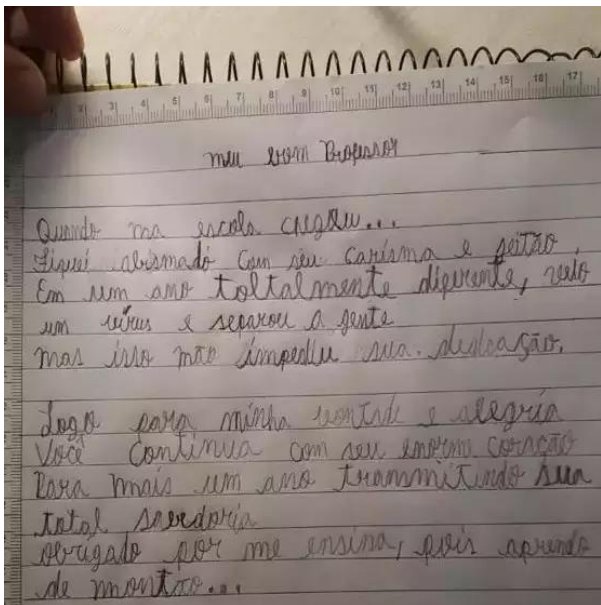 1 2 3 4 5 6 7 8 9 10 11 12 13 14 15 16 17
meu bom Professor
Quando na escola chegou...
Fiquei abismado com seu carisma e jeitão,
Em um ano toltalmente diferente, veio
um vírus e separou a gente
mas isso não impediu sua dedicação.
Logo para minha vontade e alegria
Você continua com seu enorme coração
Para mais um ano transmitindo sua
total sabedoria
obrigado por me ensina, pois aprendo
de montão...